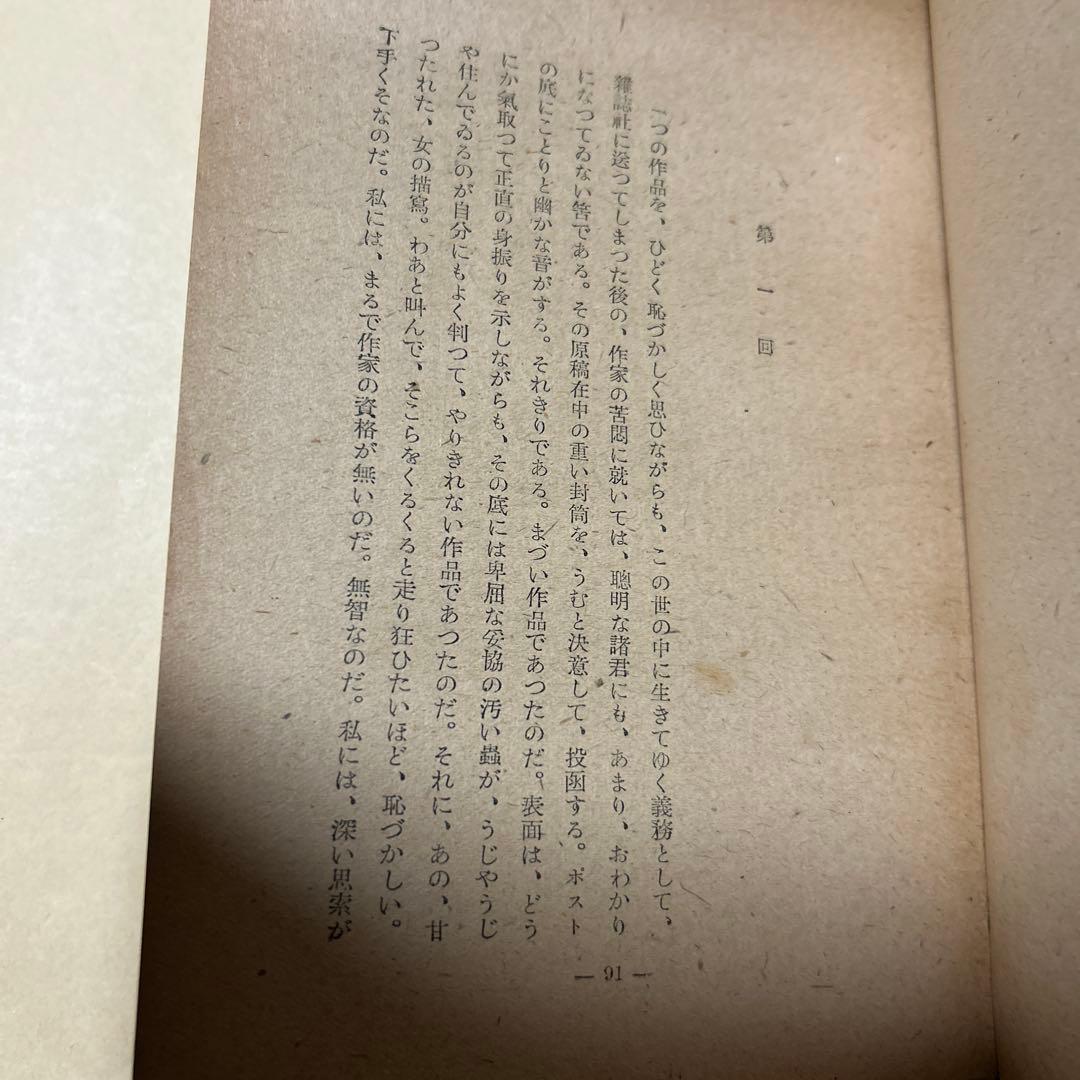 第一回
一つの作品を、ひどく恥づかしく思ひながらも、この世の中に生きてゆく義務として、
雜誌社に送つてしまつた後の、作家の苦悶に就いては、聰明な諸君にも、あまり、おわかり
になつてゐない筈である。その原稿在中の重い封筒を、うむと決意して、投函する。ポスト
の底にことりと幽かな音がする。それきりである。まづい作品であつたのだ。表面は、どう
にか氣取つて正直の身振りを示しながらも、その底には卑屈な妥協の汚い蟲が、うじやうじ
や住んでゐるのが自分にもよく判つて、やりきれない作品であつたのだ。それに、あの、甘
つたれた、女の描寫。わあと叫んで、そこらをくるくると走り狂ひたいほど、恥づかしい。
下手くそなのだ。私には、まるで作家の資格が無いのだ。無智なのだ。私には、深い思索が
— 91 —